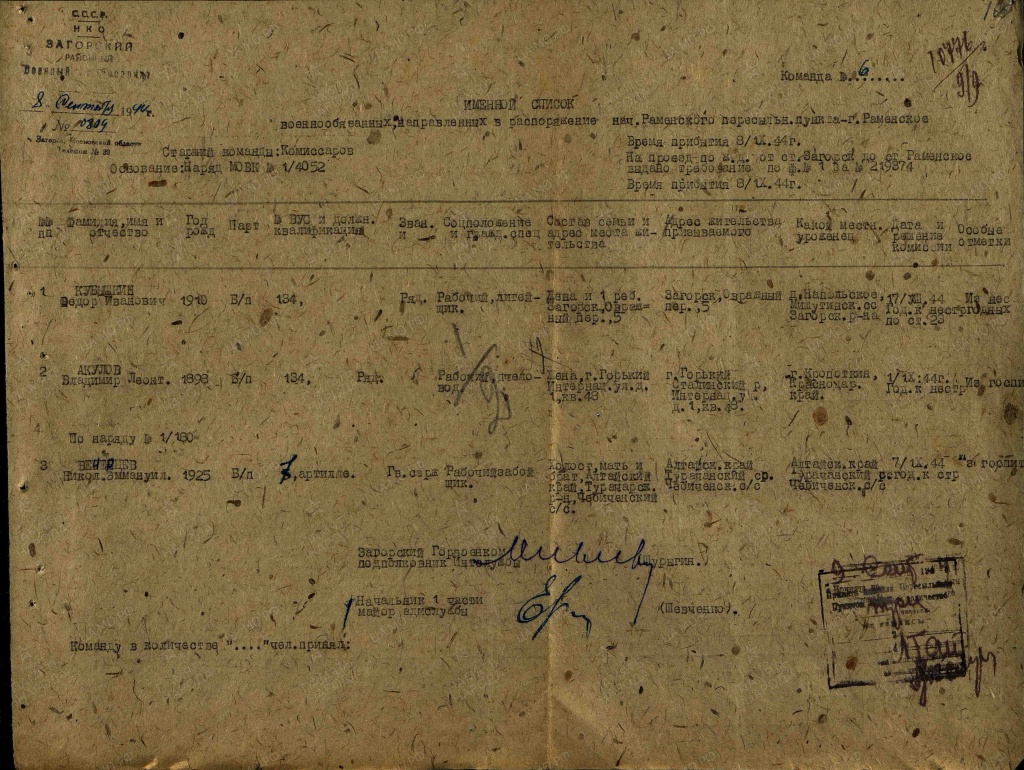 С.С.С.Р.
НКО
ЗАГОРСКИЙ
РАЙОННЫЙ
Военный
8 Сентября 1944 г.
№ 10809
г. Загорск, Московской области
Телефон № 33
10776
9/9
Команда №..6......
ИМЕННОЙ СПИСОК
военнообязанных,направленных в распоряжение нач.Раменского пересыльн.пункта-г.Раменское
Старший команды:Комиссаров
Основание:Наряд МОВК № 1/4052
Время прибытия 8/1Х.44г.
На проезд по ж.д. от ст.Загорск до ст.Раменское
выдано требование по ф.№ 1 за № 219374
Время прибытия 8/1Х.44г.
№№ пп
Фамилия,имя и отчество
Год рожд
Парт
№ ВУС и должн. квалификация
Зван. и
Соцположение и гражд.спец
Состав семьи и адрес места жительства
Адрес жительства призываемого
Какой местн. уроженец
Дата и решение комиссии
Особые отметки
1
КУБЫШКИН
Федор Иванович 1910 Б/п 134, Ряд.
Рабочий,литей-
щик.
Жена и 1 реб.
Загорск,Овраж-
ный пер.,5
Загорск,Овражный
пер.,5
д.Напольское,
Загорск.р-на
17/VIII.44
Год.к нестр
по ст.28
Из нес
годных
2
АКУЛОВ
Владимир Леонт. 1898 Б/п 134, Ряд.
Рабочий,пчело-
вод.
Жена,г.Горький
Интернац.ул.д.
1,кв.48
г.Горький
Сталинский р,
Интернац.у
д.1,кв.48.
г.Кропоткин,
Краснодар.
край.
1/1Х.44г.
Год.к нестр
Из госпи
По наряду № 1/180
3
Никол.Эммануил. 1925 Б/п 7,артилле. Гв.серж
Рабочий забой
щик.
Холост,мать и
брат,Алтайский
край,Турачакск.
р-н,Чебиченский
с/с.
Алтайск.край
Турачакский ср.
Чебиченск.с/с
Алтайск.край
Турачакский р.
Чебиченск.с/с
7/1Х.44
год.к стр
"з госпит
Загорский Горвоенком
подполковник Интслужбы
/Шурыгин./
Начальник 1 части
майор адмслужбы
(Шевченко).
Команду в количестве "...."чел.принял:
9 Сент 1944